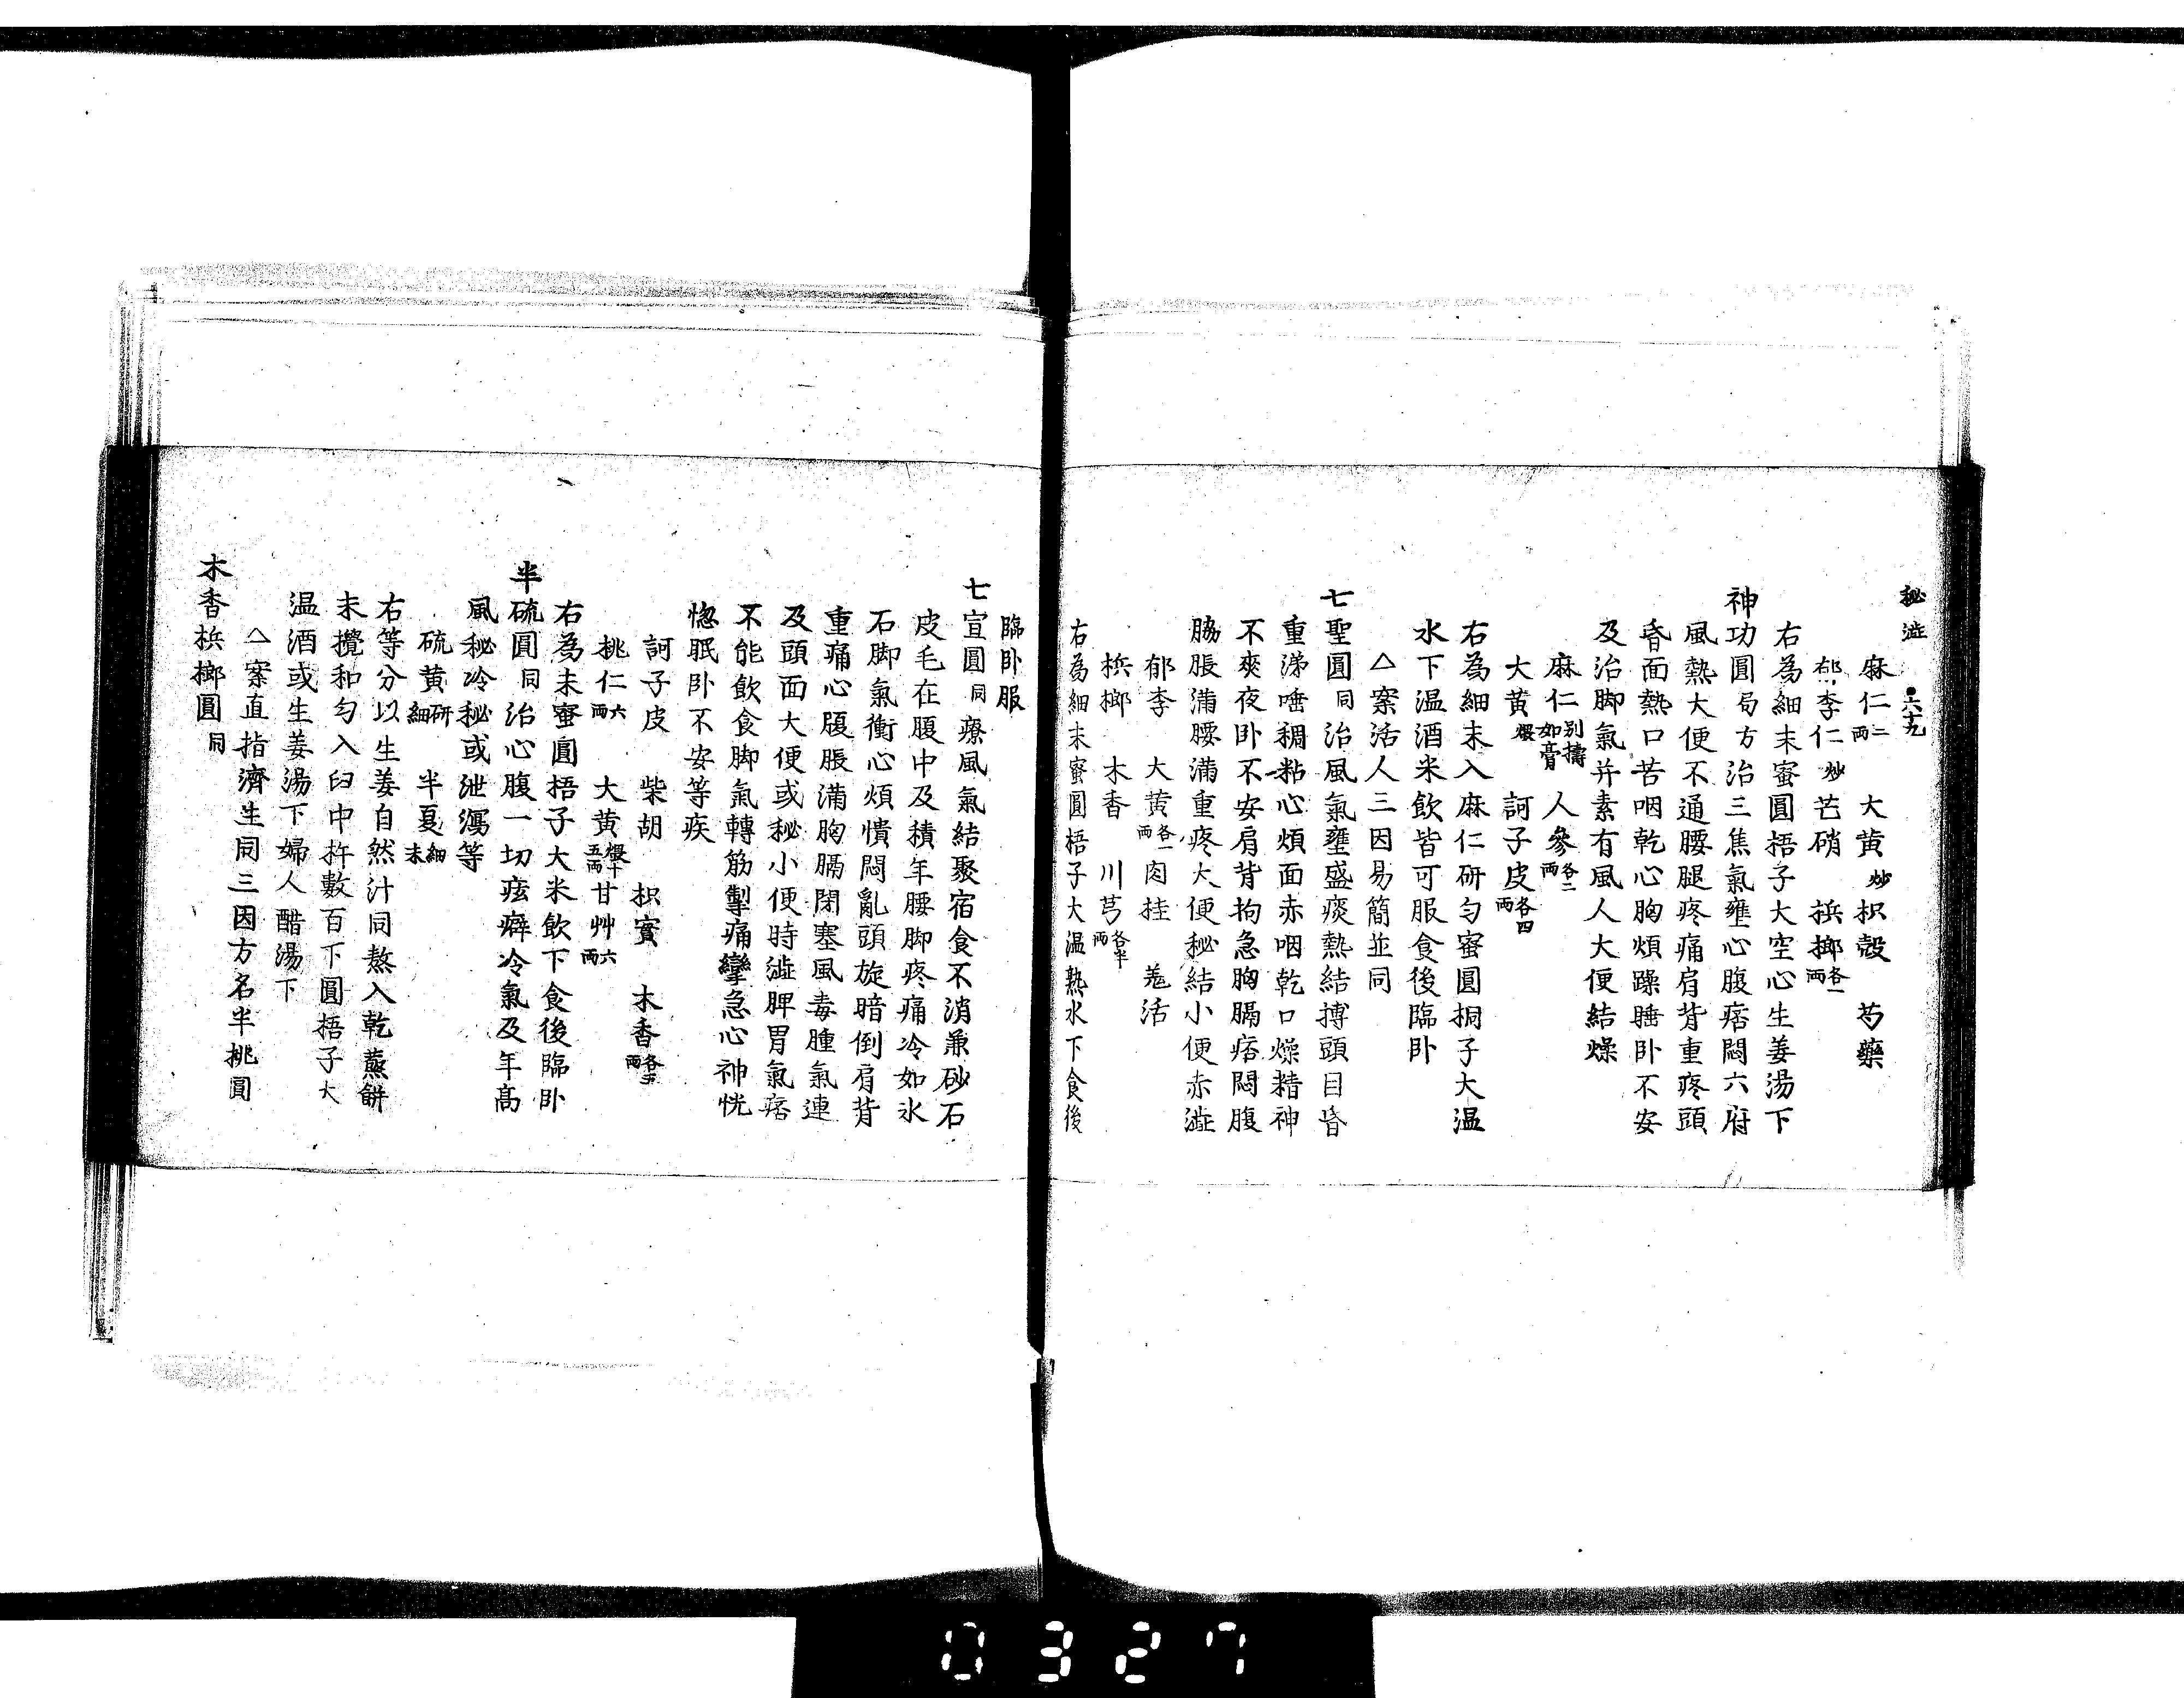 秘澁 ●六十九
麻仁二兩 大黄炒 枳殻 芍藥
郁李仁炒 芒硝 梹榔各一兩
右為細末蜜圓梧子大空心生姜湯下
神功圓局方治三焦氣壅心腹痞悶六府
風熱大便不通腰腿疼痛肩背重疼頭
昏面熱口苦咽乾心胸煩躁睡卧不安
及治脚氣并素有風人大便結燥
麻仁別擣如膏 人參各二兩
大黄煨 訶子皮各四兩
右為細末入麻仁研匀蜜圓桐子大温
水下温酒米飲皆可服食後臨卧
△案活人三因易簡並同
七聖圓同治風氣壅盛痰熱結搏頭目昏
重涕唾稠粘心煩面赤咽乾口燥精神
不爽夜卧不安肩背拘急胸膈痞悶腹
脇脹滿腰滿重疼大便秘結小便赤澁
郁李 大黄各一兩 肉桂 羗活
梹榔 木香 川芎各半兩
右為細末蜜圓梧子大温熱水下食後
臨卧服
七宣圓同療風氣結聚宿食不消兼砂石
皮毛在腹中及積年腰脚疼痛冷如氷
石脚氣衝心煩憒悶亂頭旋暗倒肩背
重痛心腹脹滿胸膈閉塞風毒腫氣連
及頭面大便或秘小便時澁脾胃氣痞
不能飲食脚氣轉筋掣痛攣急心神恍
惚眠卧不安等疾
訶子皮 柴胡 枳實 木香各五兩
桃仁六兩 大黄煨十五兩 甘艸六兩
右為末蜜圓梧子大米飲下食後臨卧
半硫圓同治心腹一切痃癖冷氣及年高
風秘冷秘或泄瀉等
硫黄研細 半夏細末
右等分以生姜自然汁同熬入乾蒸餅
末攪和匀入臼中杵數百下圓梧子大
温酒或生姜湯下婦人醋湯下
△案直指濟生同三因方名半桃圓
木香梹榔圓同
0327